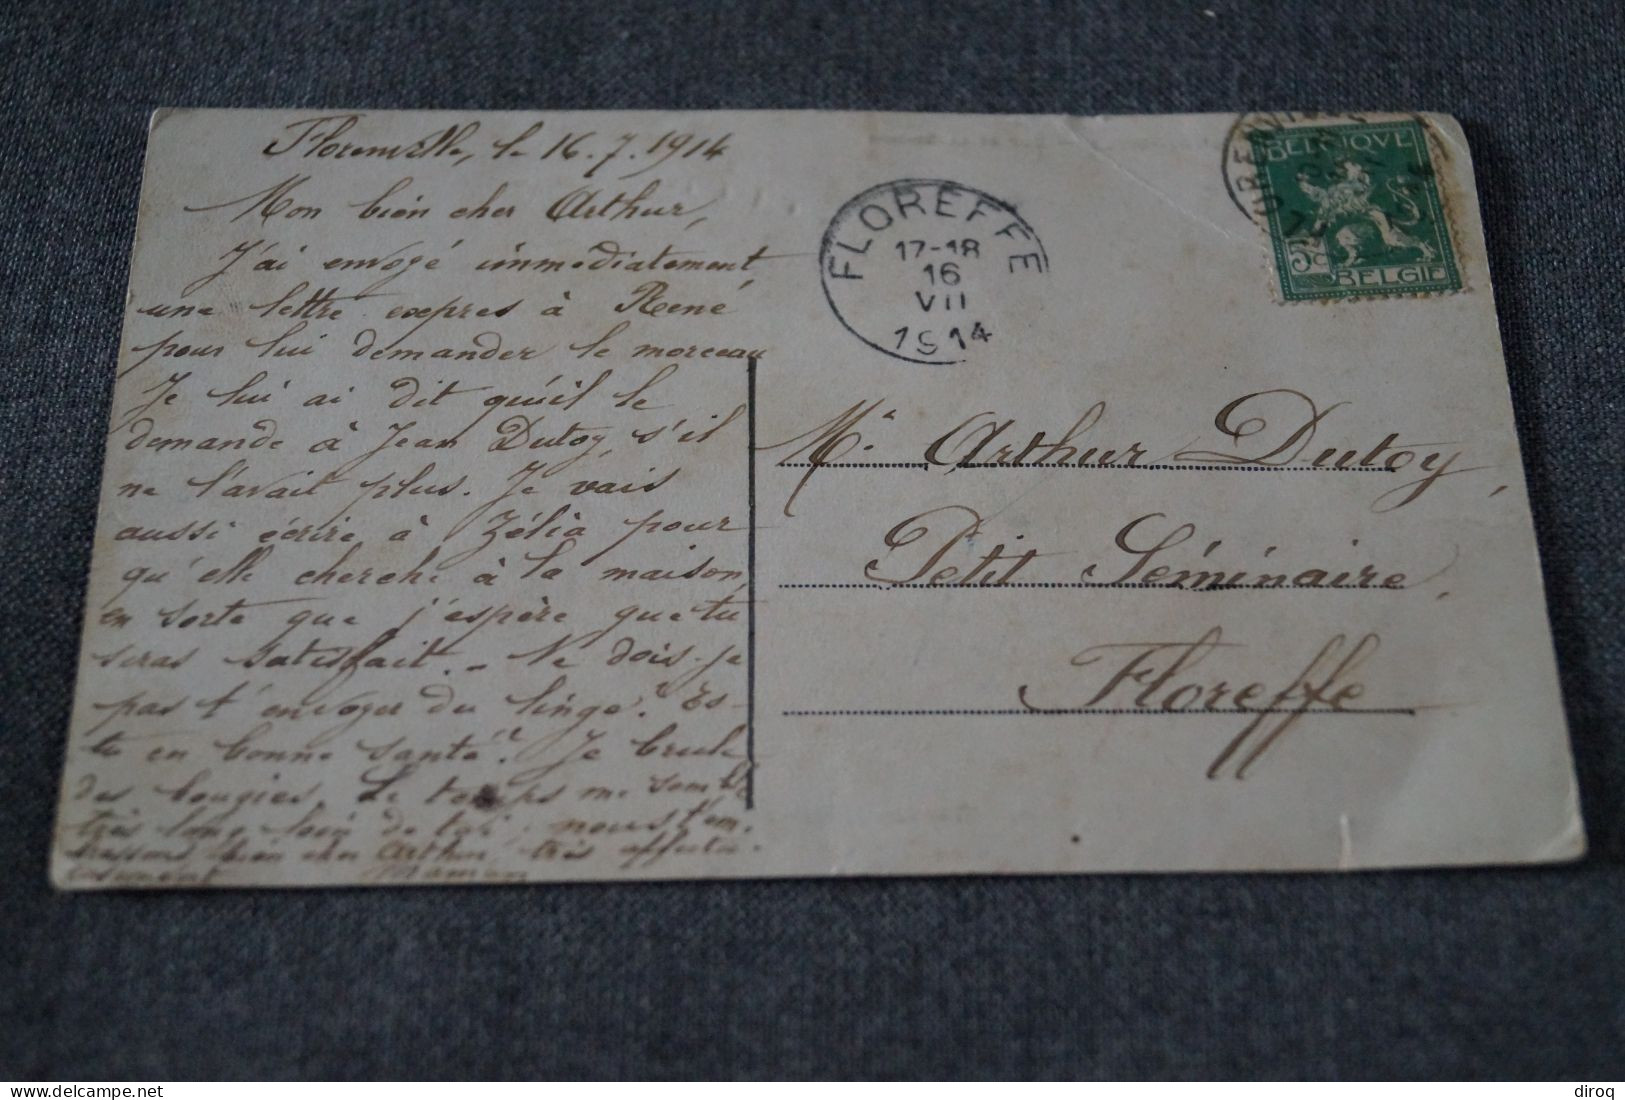 Florenville, le 16.7.1914
Mon bien cher Arthur,
J'ai envoyé immédiatement
une lettre expres à René
pour lui demander le morceau
Je lui ai dit qu'il le
demande à Jean Dutoy, s'il
ne l'avait plus. Je vais
aussi écrire à Zélia pour
qu'elle cherche à la maison,
en sorte que j'espère que tu
seras satisfait. - Ne dois-je
pas t'envoyer du linge? Es-
tu en bonne santé? Je brule
des bougies. Le temps me semble
très long loin de toi. nous t'em-
brassons bien cher Arthur très affectu-
eusement Maman
FLOREFFE
17-18
16
VII
1914
BELGIQUE
5c
BELGIE
Mr Arthur Dutoy,
Petit Séminaire,
Floreffe
delcampe.net
diroq